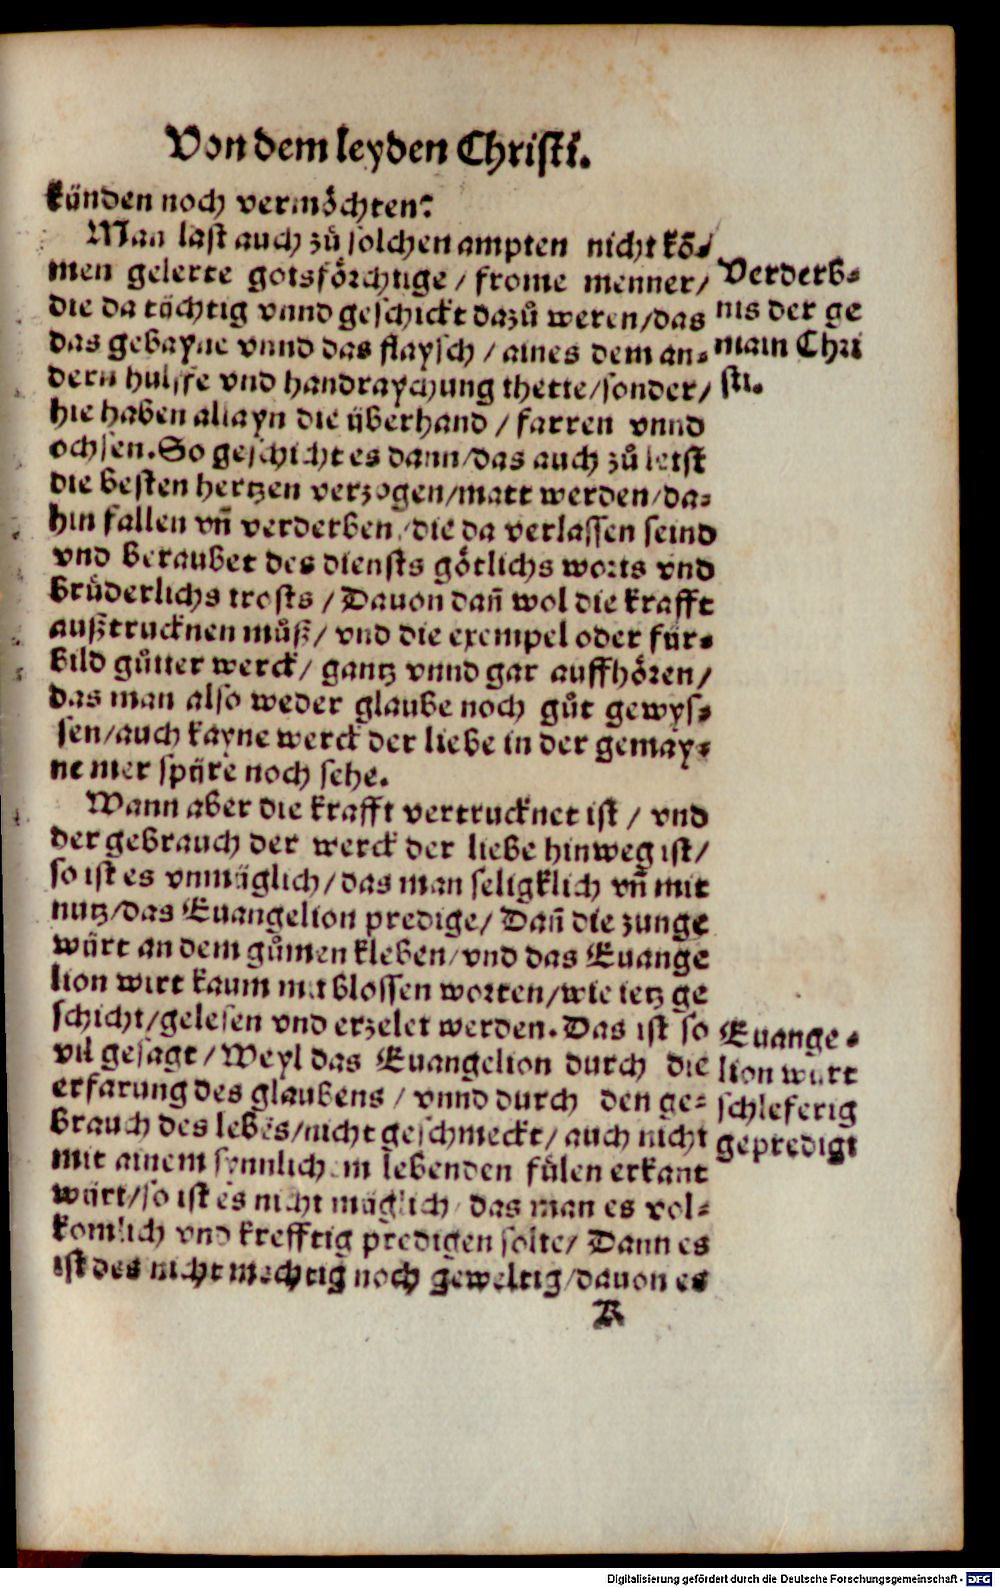 Von dem leyden Christi.
künden noch vermöchten?
Man last auch zů solchen ampten nicht kō⸗
men gelerte gotsförchtige / frome menner /
die da töchtig vnnd geschickt dazů weren / das
das gebayne vnnd das flaysch / aines dem an⸗
dern hulffe vnd handraychung thette / sonder /
hie haben allayn die überhand / farren vnnd
ochsen. So geschicht es dann / das auch zů letst
die besten hertzen verzogen / matt werden / da⸗
hin fallen vn̄ verderben / die da verlassen seind
vnd beraubet des diensts götlichs worts vnd
brüderlichs trosts / Dauon dan̄ wol die krafft
außtrucknen můß / vnd die exempel oder für⸗
bild gůtter werck / gantz vnnd gar auffhören /
das man also weder glaube noch gůt gewys⸗
sen / auch kayne werck der liebe in der gemay⸗
ne mer spüre noch sehe.
Wann aber die krafft vertrucknet ist / vnd
der gebrauch der werck der liebe hinweg ist /
so ist es vnmüglich / das man seligklich vn̄ mit
nutz / das Euangelion predige / Dan̄ die zunge
würt an dem gůmen kleben / vnd das Euange
lion wirt kaum mit blossen worten / wie ietz ge
schicht / gelesen vnd erzelet werden. Das ist so
vil gesagt / Weyl das Euangelion durch die
erfarung des glaubens / vnnd durch den ge⸗
brauch des lebēs / nicht geschmeckt / auch nicht
mit ainem synnlichem lebenden fülen erkant
würt / so ist es nicht müglich / das man es vol⸗
komlich vnd krefftig predigen solte / Dann es
ist des nicht mechtig noch geweltig / dauon es
Verderb⸗
nis der ge
main Chri
sti.
Euange⸗
lion wurt
schleferig
gepredigt
Digitalisierung gefördert durch die Deutsche Forschungsgemeinschaft - DFG